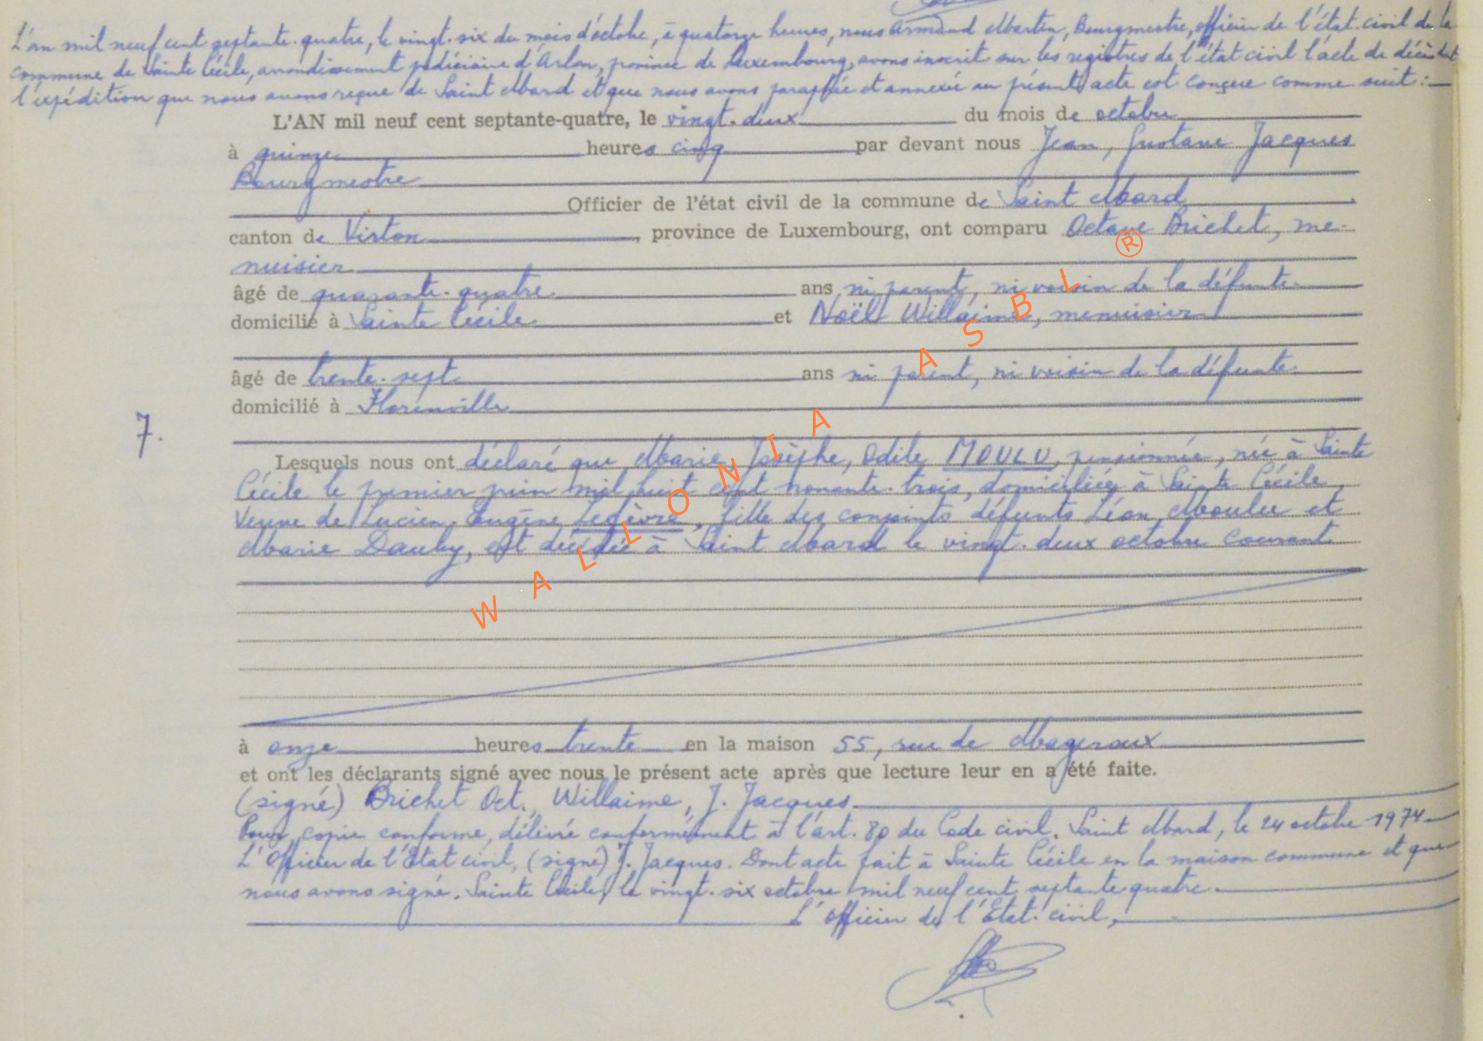 L'an mil neuf cent septante-quatre, le vingt-six du mois d'octobre, à quatorze heures, nous Armand Martin, Bourgmestre, officier de l'état-civil de la
commune de Sainte Cécile, arrondissement judiciaire d'Arlon, province de Luxembourg, avons inscrit sur les registres de l'état civil l'acte de décès dont
l'expédition que nous avons reçue de Saint Mard et que nous avons paraphée et annexée au présent acte est conçue comme suit :
L'AN mil neuf cent septante-quatre, le vingt-deux du mois de octobre
à quinze heures cinq par devant nous Jean, Gustave Jacques
Bourgmestre
Officier de l'état civil de la commune de Saint Mard
canton de Virton, province de Luxembourg, ont comparu Octave Brichet, me-
nuisier
âgé de quarante-quatre ans, ni parent, ni voisin de la défunte
domicilié à Sainte Cécile et Noël Willaime, menuisier
âgé de trente-sept ans ni parent, ni voisin de la défunte
domicilié à Florenville
7.
Lesquels nous ont déclaré que Marie, Josèphe, Odile MOULU, pensionnée, née à Sainte
Cécile le premier juin mil huit cent nonante-trois, domiciliée à Sainte Cécile,
Veuve de Lucien, Eugène Lefèvre, fille des conjoints défunts Léon Moulu et
Marie Dauby, est décédée à Saint Mard le vingt-deux octobre courant
à onze heures trente en la maison 55, rue de Mageroux
et ont les déclarants signé avec nous le présent acte après que lecture leur en a été faite.
(signé) Brichet Oct., Willaime, J. Jacques.
Pour copie conforme, délivré conformément à l'art. 80 du Code civil. Saint Mard, le 24 octobre 1974
L'Officier de l'Etat civil, (signé) J. Jacques. Dont acte fait à Sainte Cécile en la maison commune et que
nous avons signé. Sainte Cécile, le vingt-six octobre mil neuf cent septante quatre.
L'officier de l'Etat-civil,
WALLONIA ASBL ®